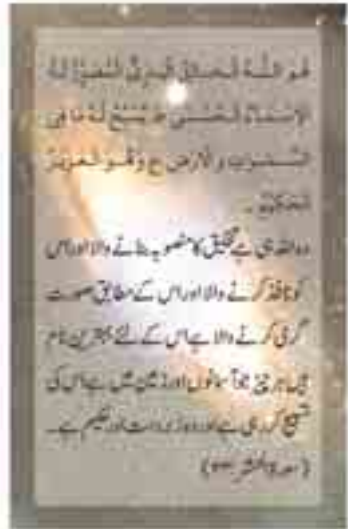 هُوَ اللَّهُ الْخَالِقُ الْبَارِئُ الْمُصَوِّرُ لَهُ
الْاَسْمَاءُ الْحُسْنٰى ط يُسَبِّحُ لَهُ مَا فِى
السَّمٰوٰتِ وَالْاَرْضِ ج وَهُوَ الْعَزِيْزُ
الْحَكِيْمُ ۔
وہ اللہ ہی ہے تخلیق کا منصوبہ بنانے والا اور اس
کو نافذ کرنے والا اور اس کے مطابق صورت
گری کرنے والا ہے اس کے لئے بہترین نام
ہیں ہر چیز جو آسمانوں اور زمین میں ہے اس کی
تسبیح کر رہی ہے اور وہ زبردست اور حکیم ہے۔
(سورۃ الحشر ۲۴)